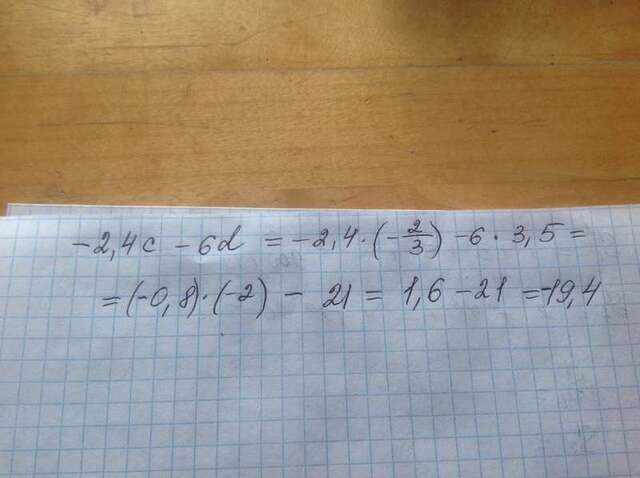 -2,4c - 6d = -2,4·(-2/3) - 6·3,5 =
= (-0,8)·(-2) - 21 = 1,6 - 21 = -19,4